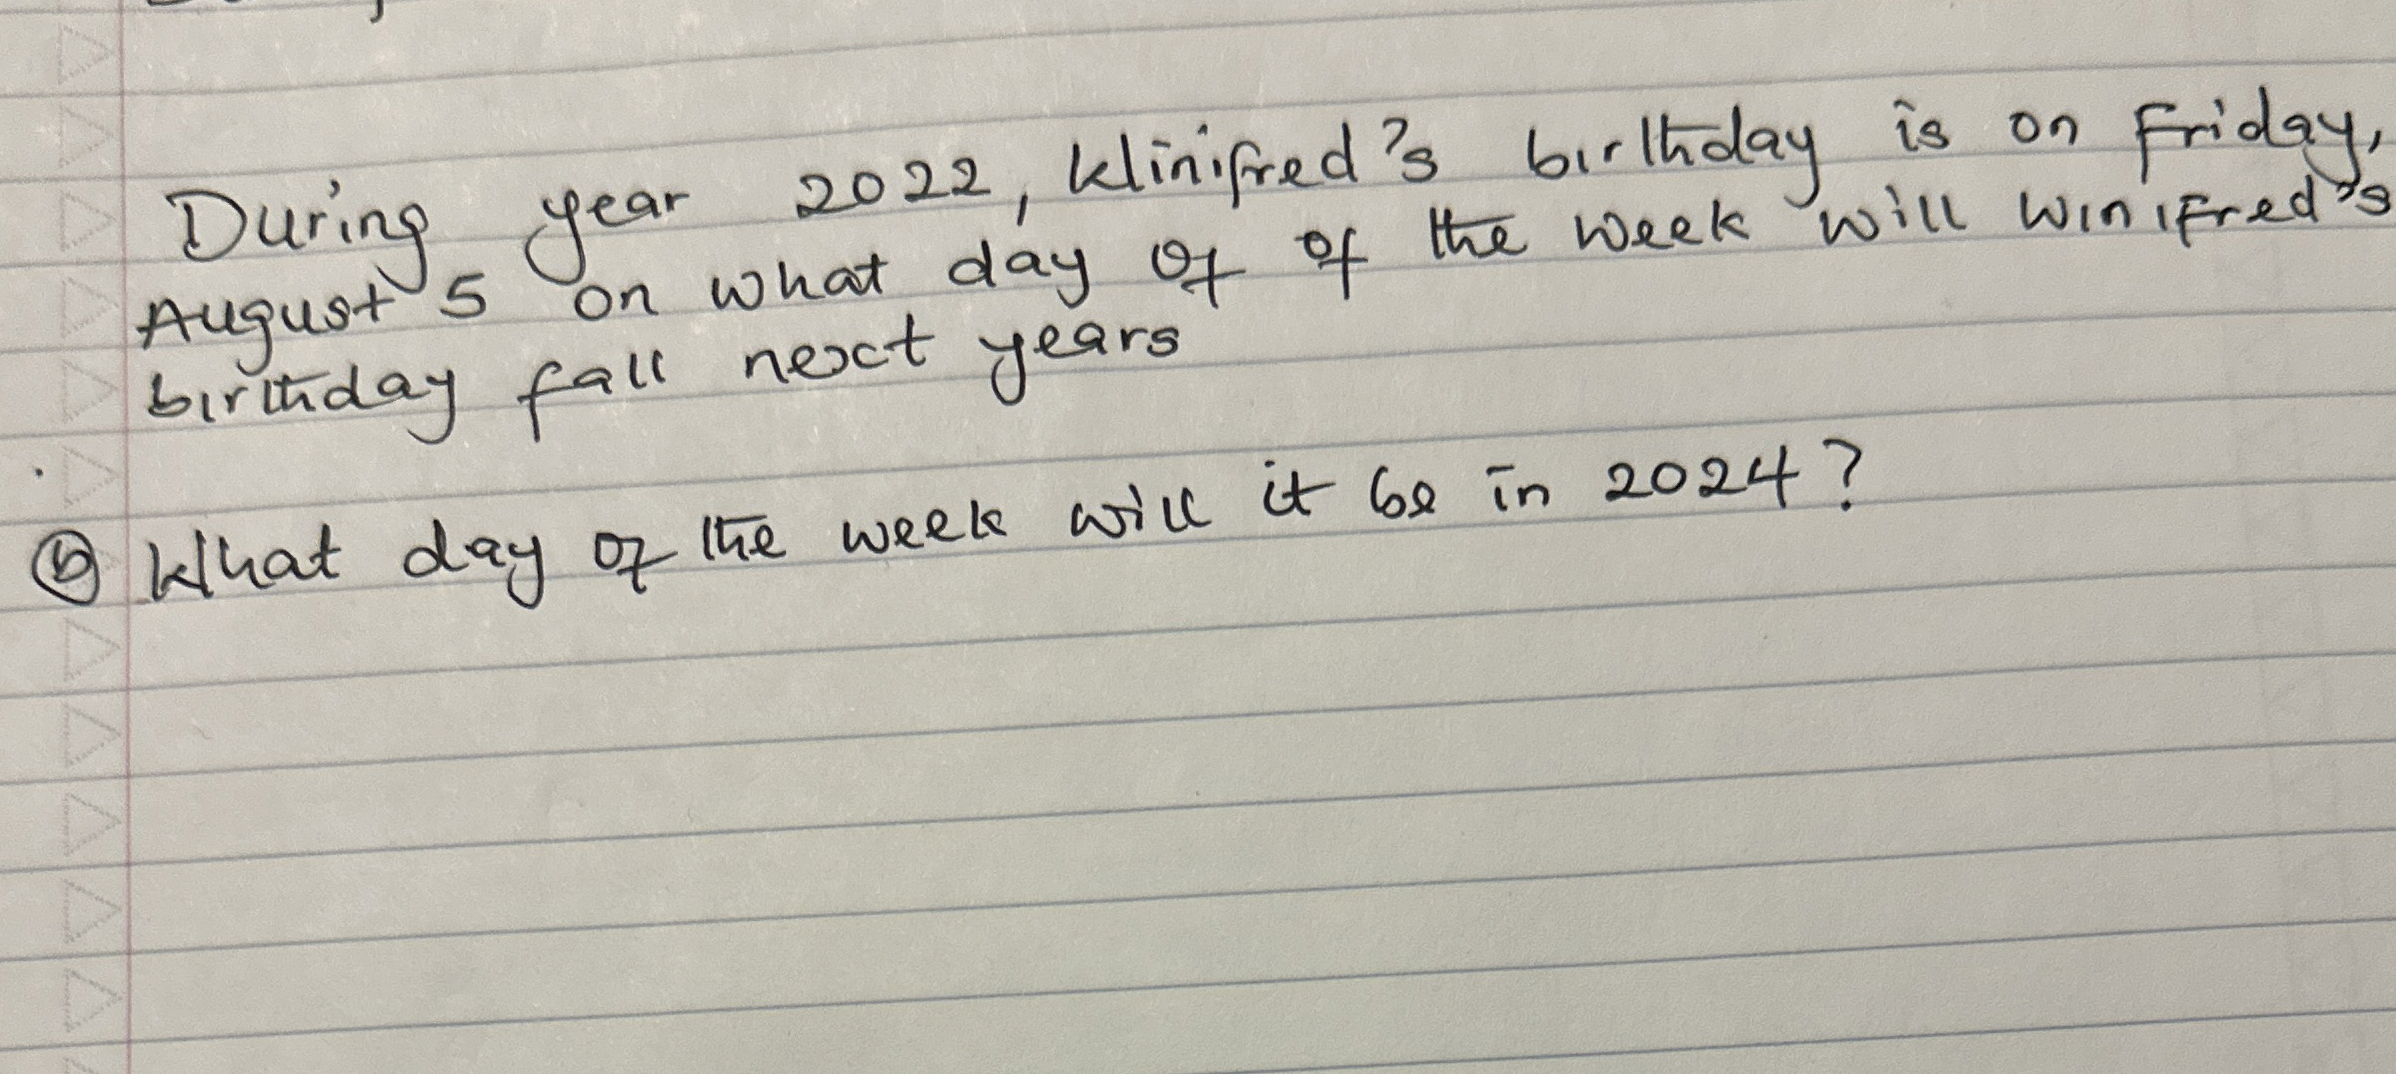 During year 2022, Winifred's birthday is on Friday,
August 5 on what day of of the week will Winifred's
birthday fall next years
(b) What day of the week will it be in 2024?